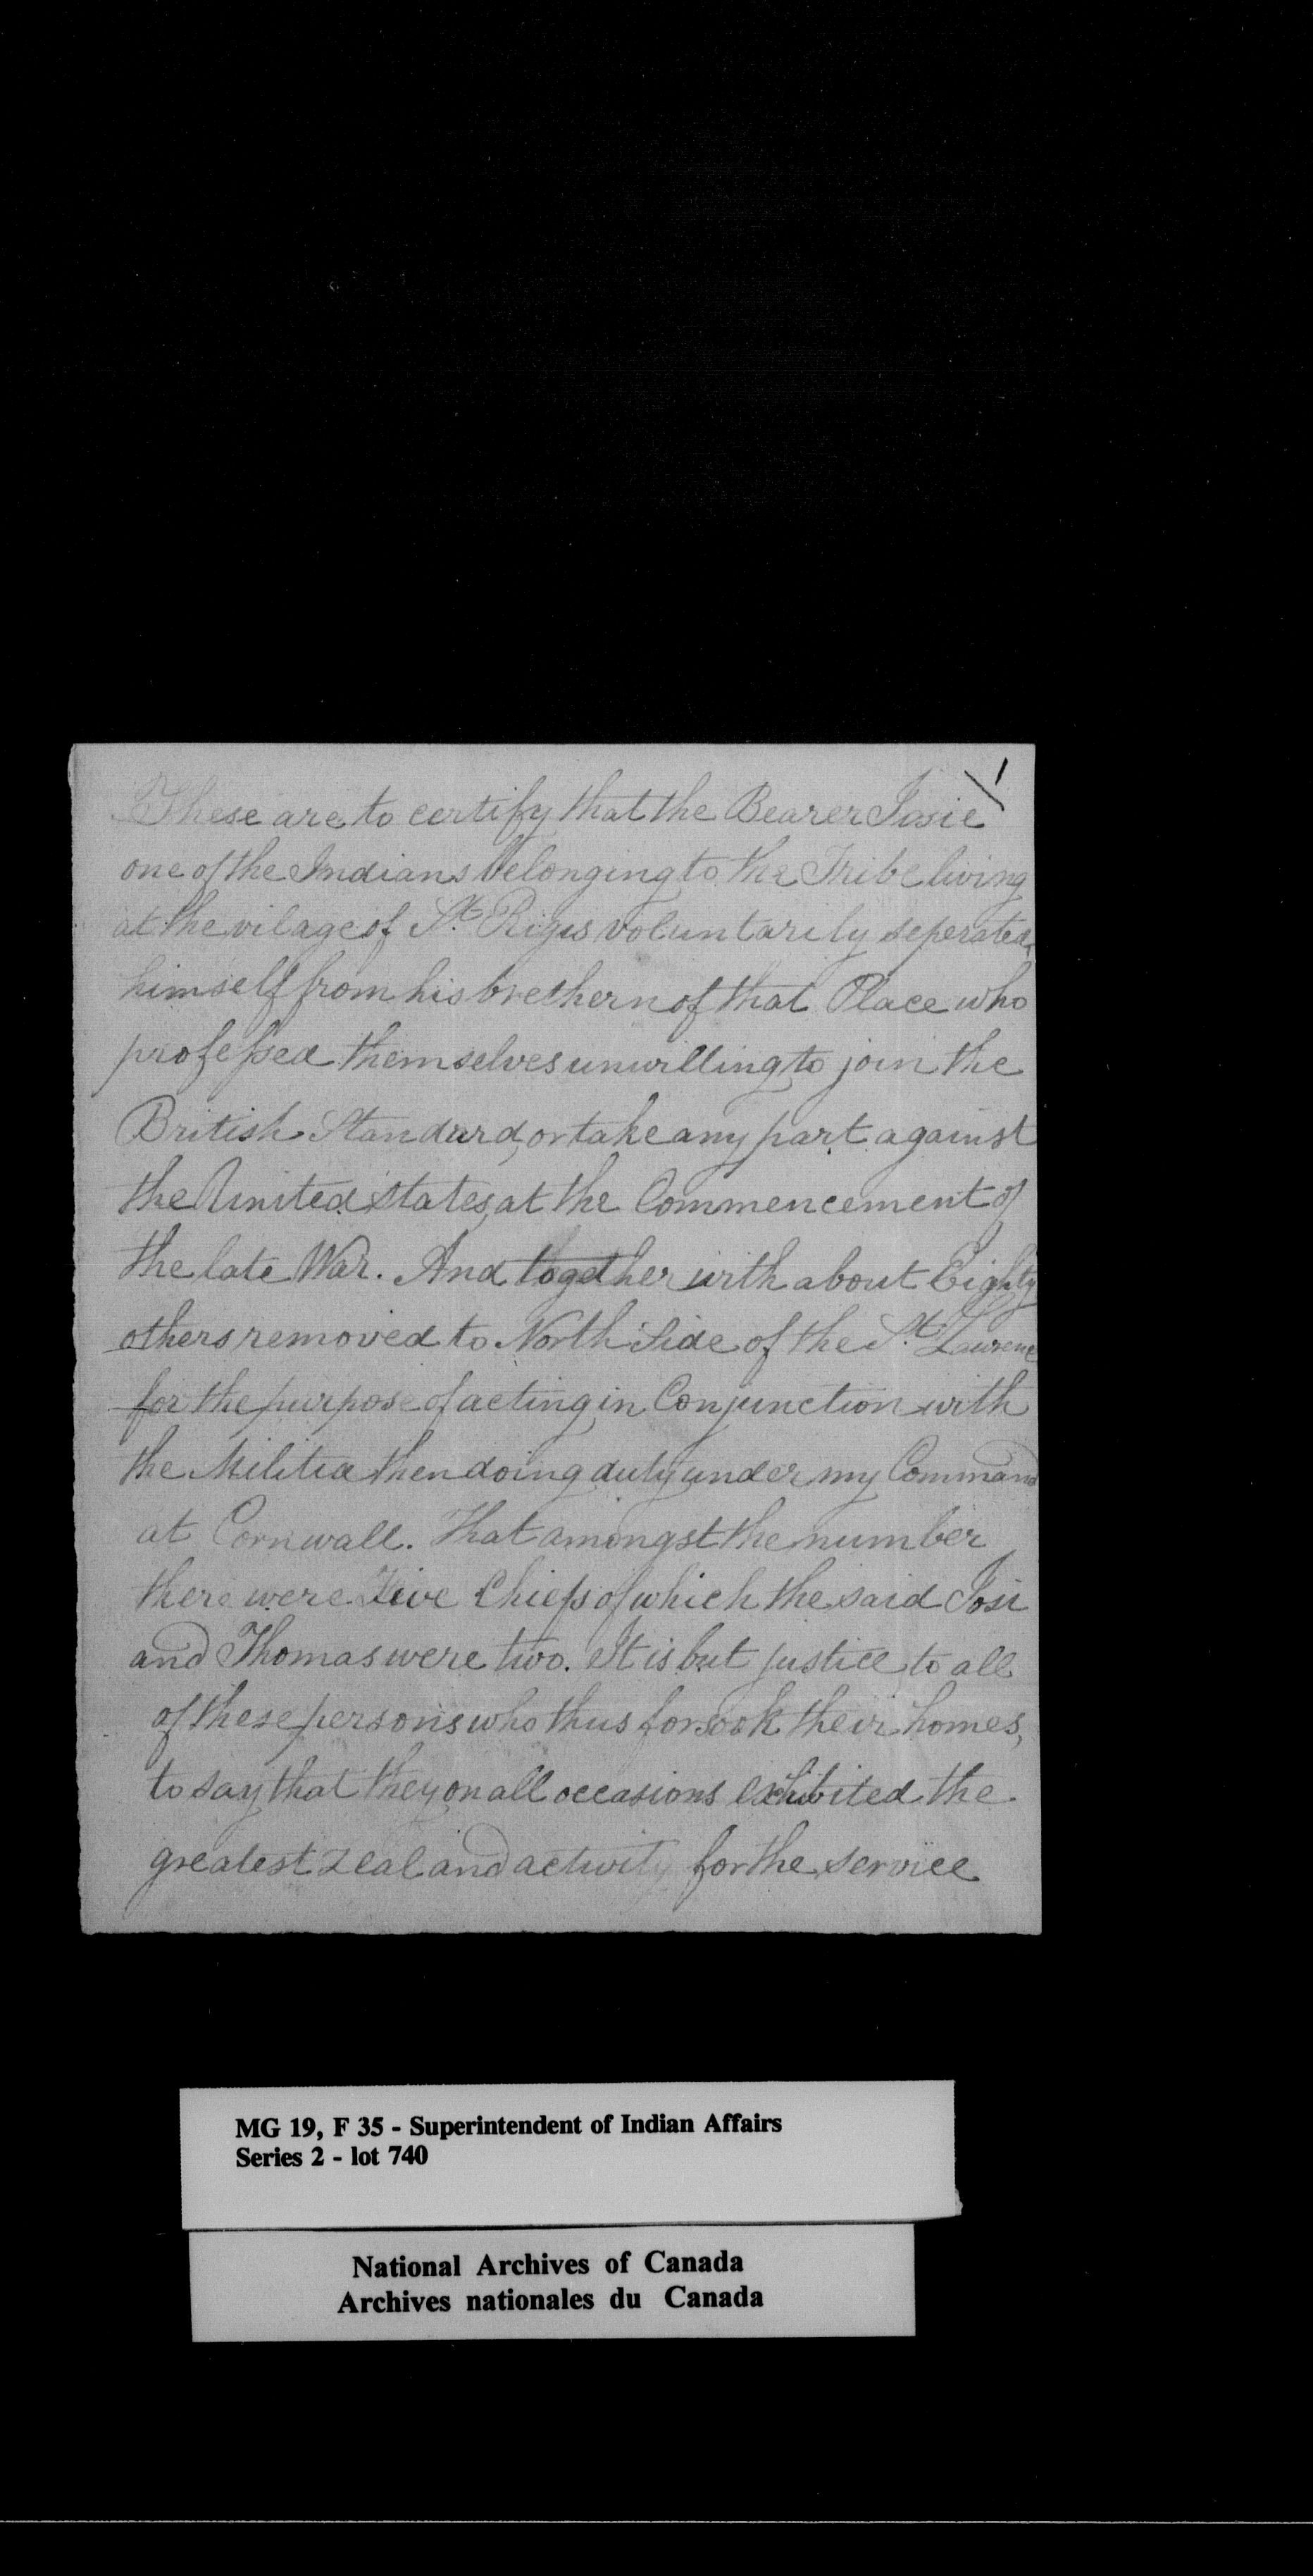 These are to certify that the Bearer Josie
one of the Indians belonging to the Tribe living
at the vilage of St. Rigis voluntarily seperated
himself from his brethern of that Place who
professed themselves unwilling to join the
British Standard, or take any part against
the United States, at the Commencement of
the late War. And together with about Eighty
others removed to North Side of the St. Lawrence
for the purpose of acting in Conjunction with
the Militia then doing duty under my Command
at Cornwall. That amongst the number
there were Five Chiefs of which the said Josi
and Thomas were two. It is but justice to all
of these persons who thus forsook their homes,
to say that they on all occasions exhibited the
greatest zeal and activity for the service
MG 19, F 35 - Superintendent of Indian Affairs
Series 2 - lot 740
National Archives of Canada
Archives nationales du Canada